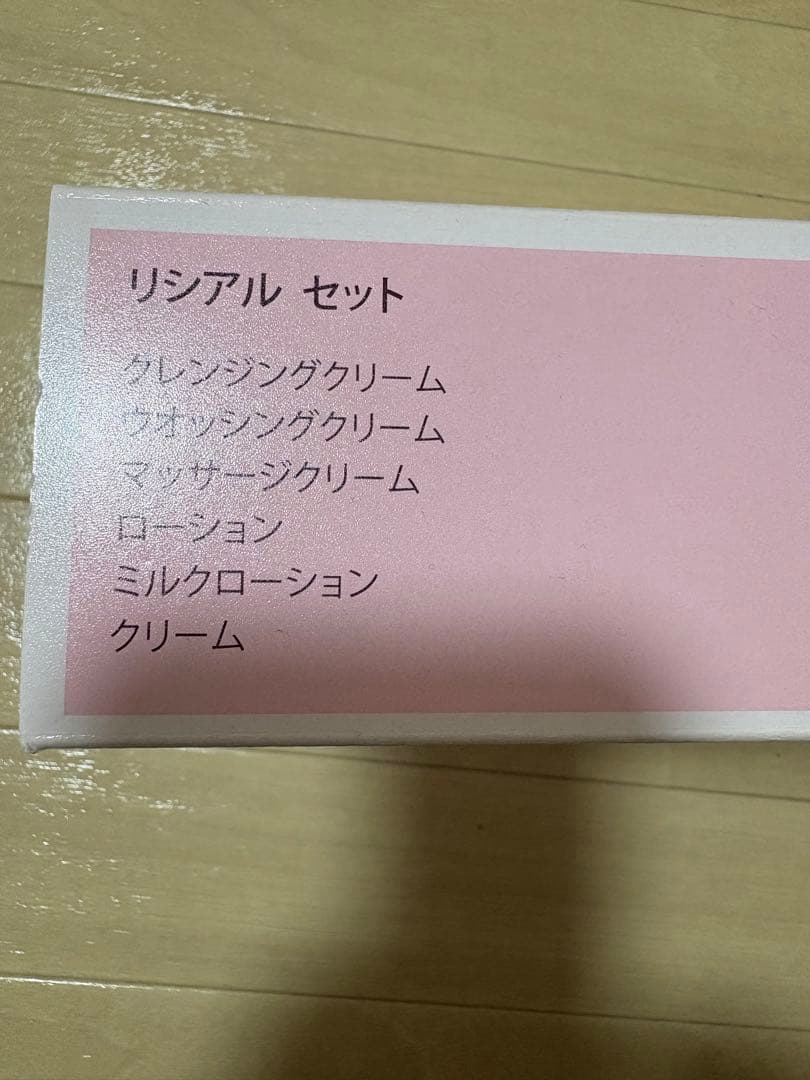 リシアル セット
クレンジングクリーム
ウオッシングクリーム
マッサージクリーム
ローション
ミルクローション
クリーム